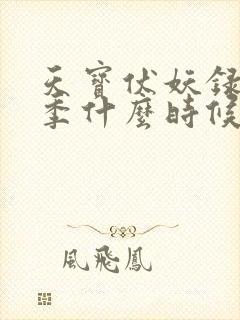 天寶伏妖錄
季什麼時候
風飛鳳